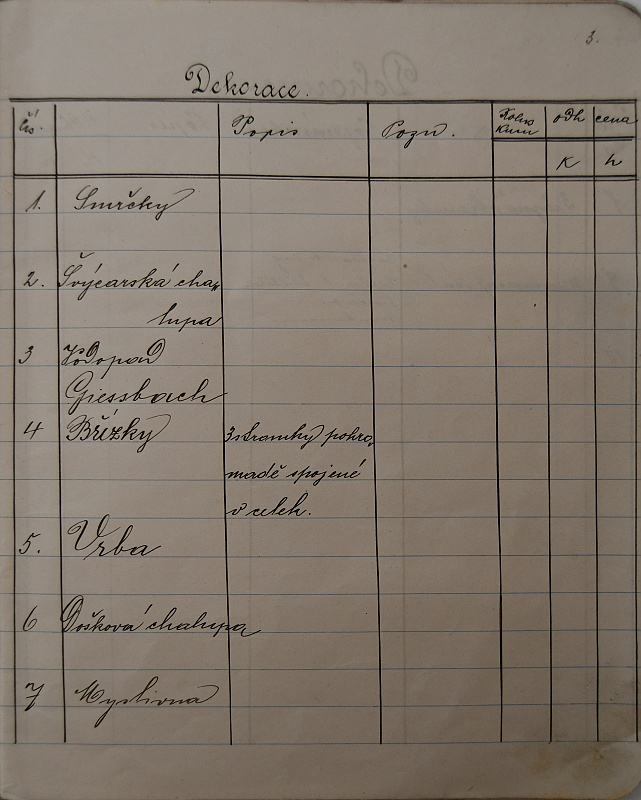 3.
Dekorace.
čís. Popis Pozn. Kolik kusů odh cena
K h
1. Smrčky
2. Švýcarská cha„
lupa
3 Vodopad
Giessbach
4 Břízky 3 stromky pohro„
madě spojené
v celek.
5. Vrba
6 Došková chalupa
7 Myslivna